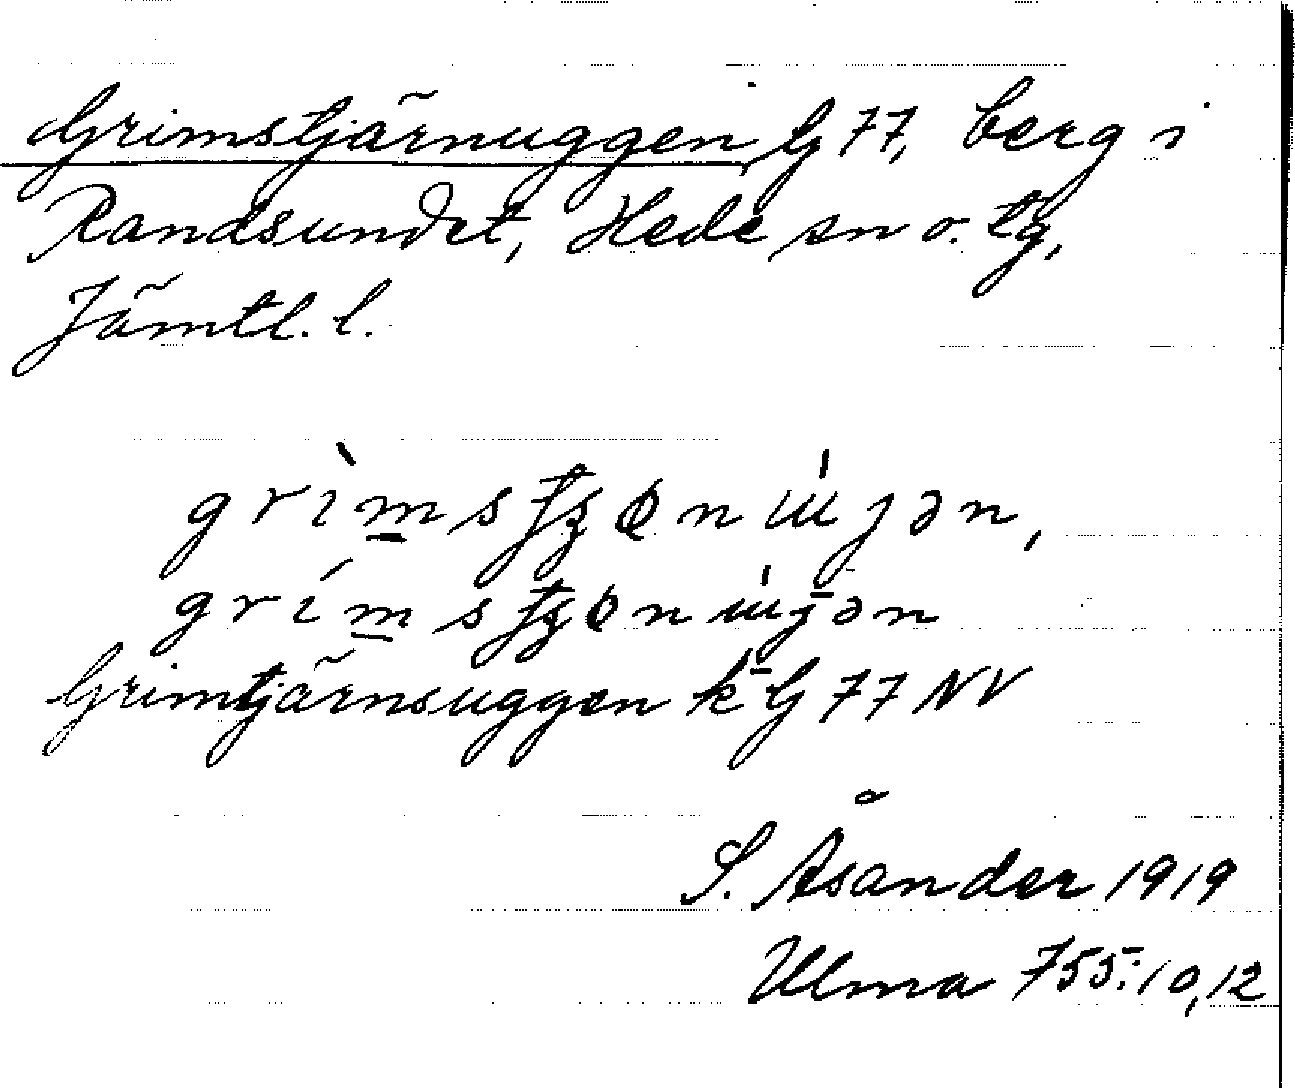 Grimstjärnuggen G 77, berg i
Randsundet, Hede sn o. tg,
Jämtl. l.
Grimtjärnsuggen k G 77 NV
S. Åsander 1919
Ulma 755:10,12